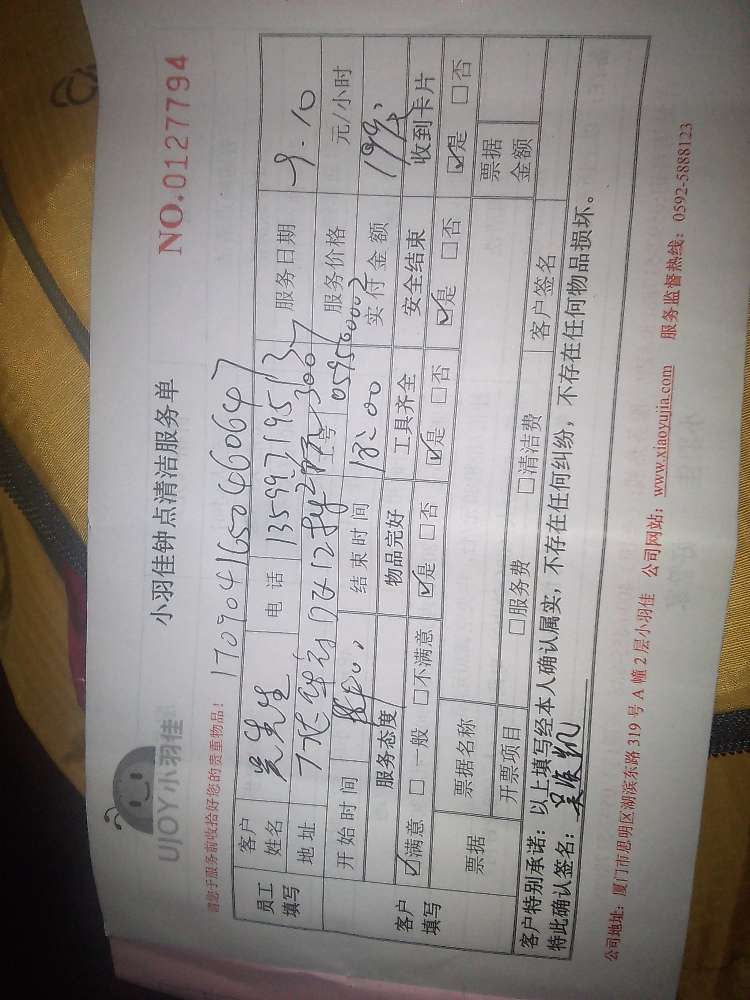 UJOY小羽佳
小羽佳钟点清洁服务单
NO.0127794
请您于服务前收拾好您的贵重物品!
1709041650460647
员工填写
客户姓名 吴先生 电话 服务日期 9.10
地址 服务价格 元/小时
开始时间 结束时间 18:00 工号 实付金额
客户填写
服务态度 物品完好 工具齐全 安全结束 收到卡片
☑满意 □一般 □不满意 ☑是 □否 ☑是 □否 ☑是 □否 ☑是 □否
票据 票据名称 票据金额
开票项目 □服务费 □清洁费 客户签名
客户特别承诺:以上填写经本人确认属实,不存在任何纠纷,不存在任何物品损坏。
特此确认签名:
公司地址:厦门市思明区湖滨东路319号A幢2层小羽佳 公司网站:www.xiaoyujia.com 服务监督热线:0592-5888123